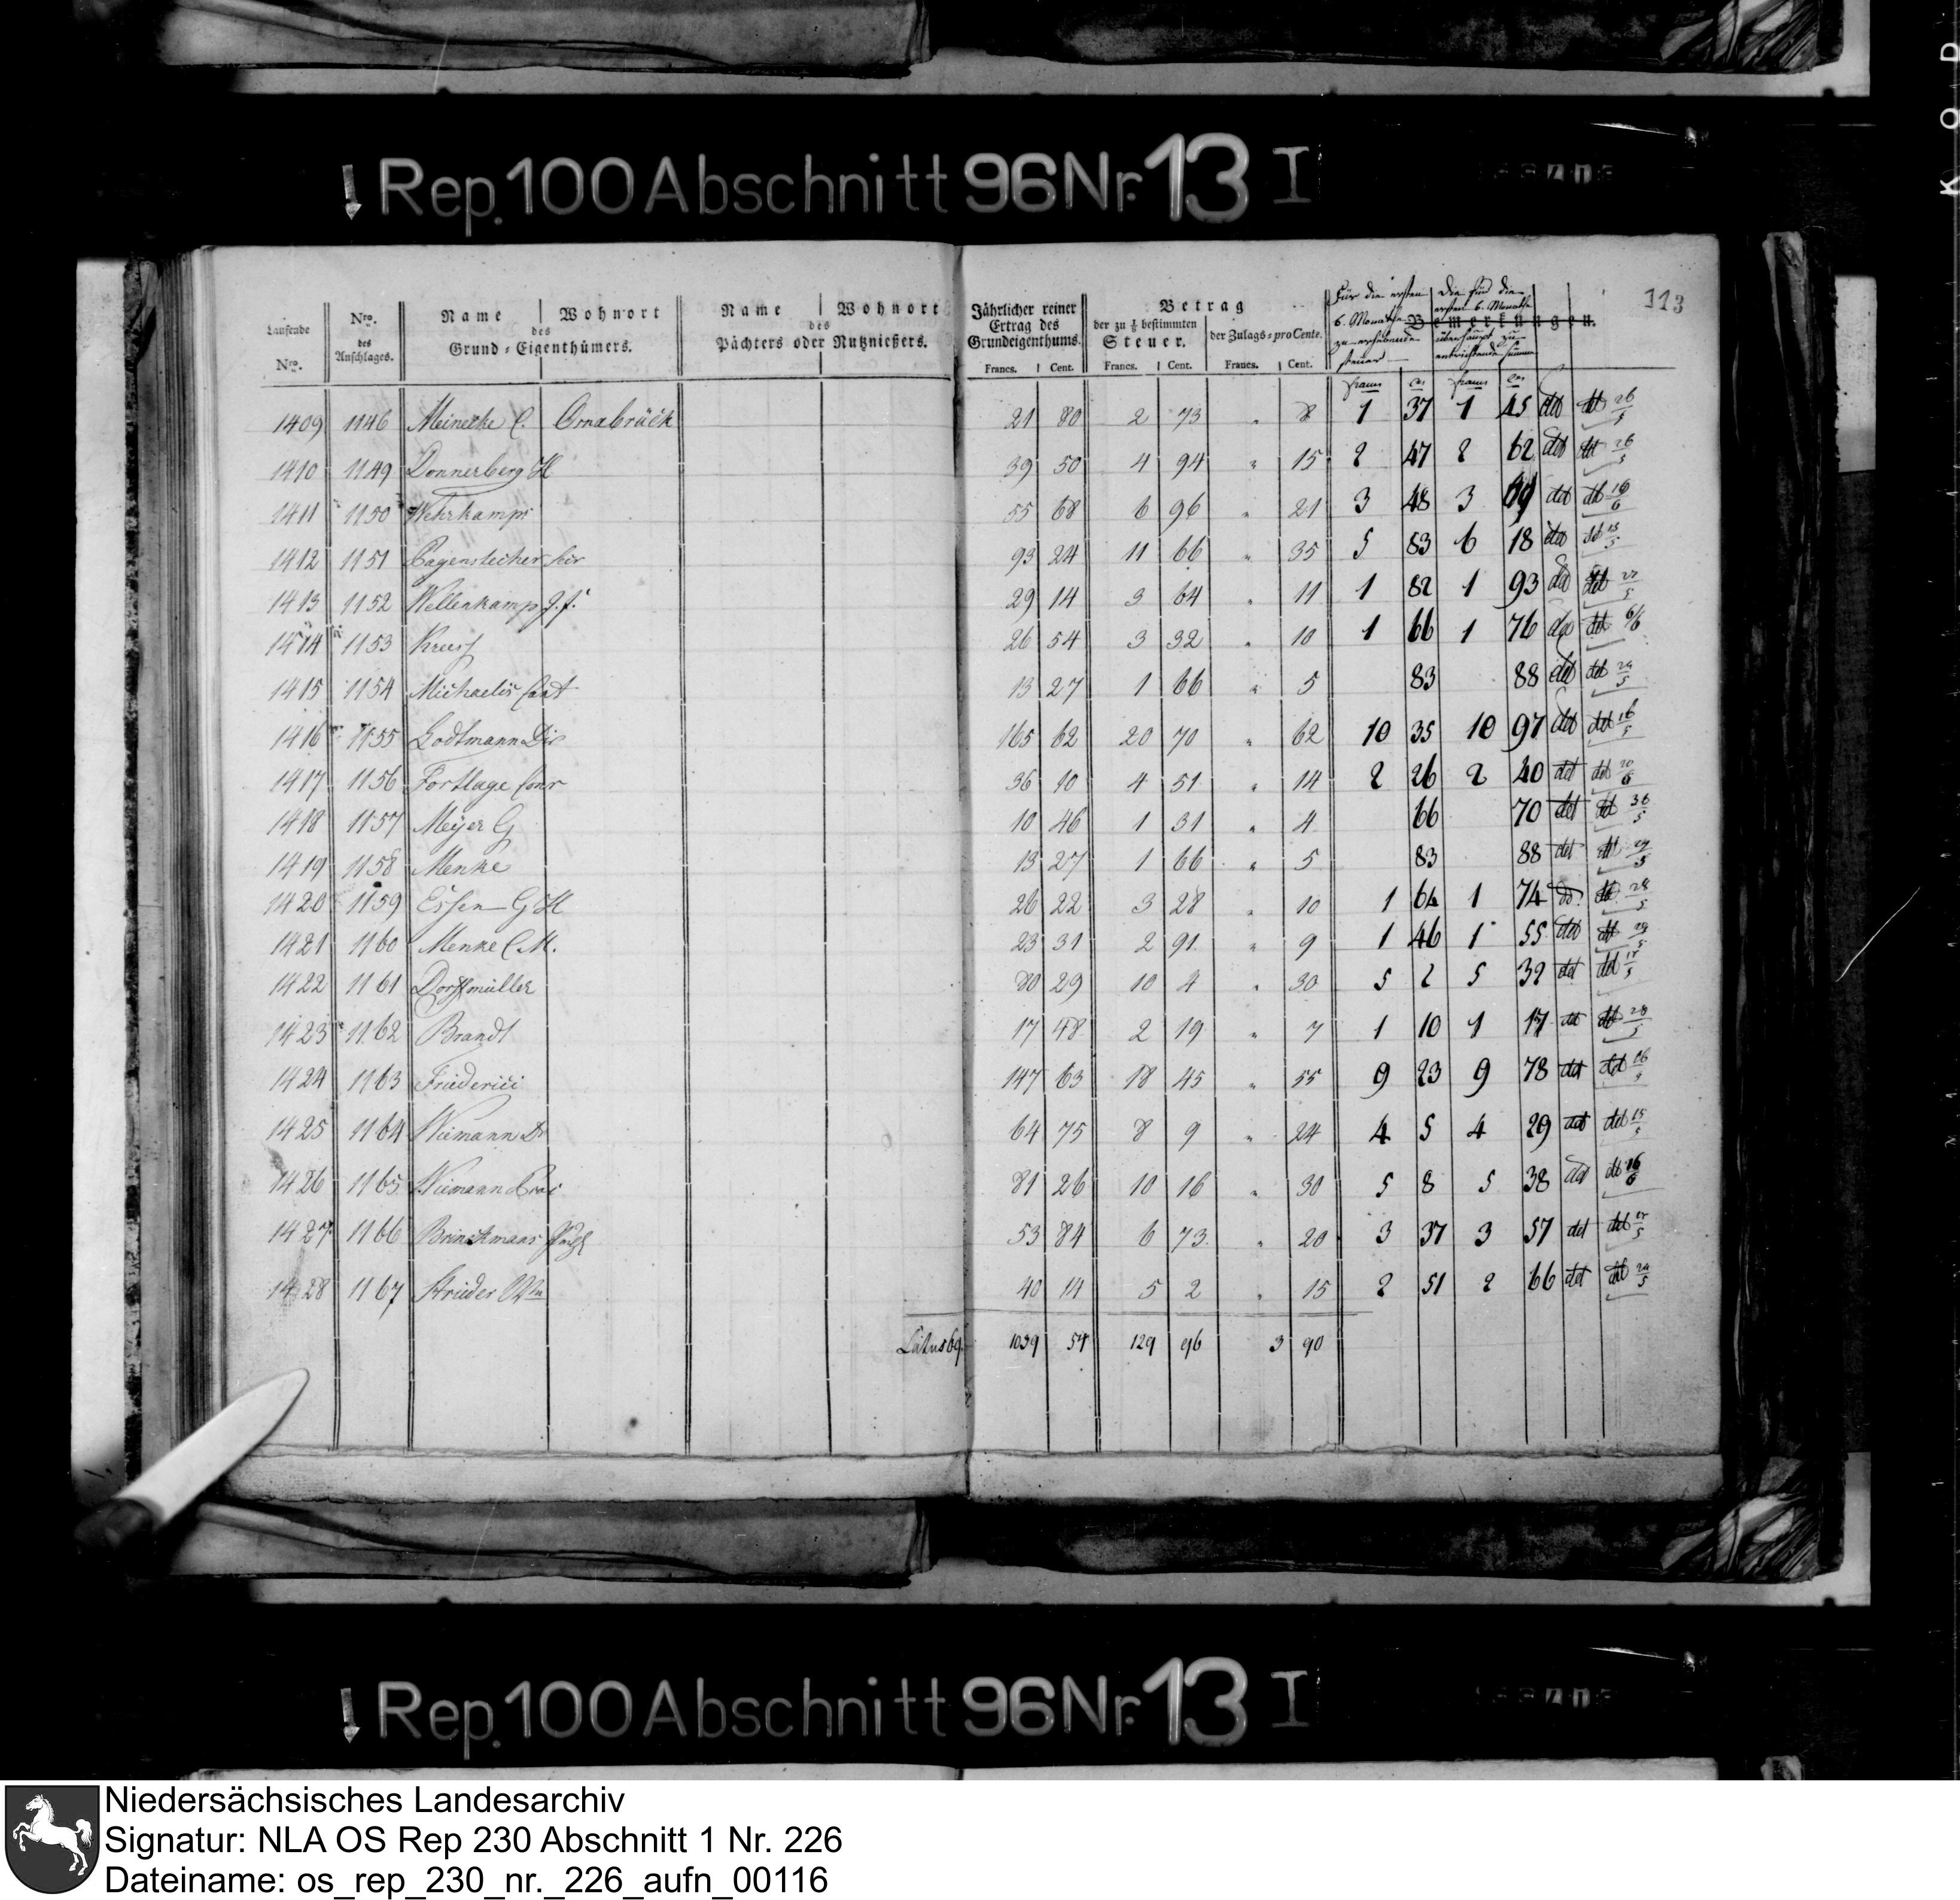 K O D
↓ Rep. 100 Abschnitt 96 Nr. 13 I
113
Laufende Nro. | Nro. des Anschlages. | Name | Wohnort des Grund-Eigenthümers. | Name | Wohnort des Pächters oder Nutznießers. | Jährlicher reiner Ertrag des Grundeigenthums. | Betrag der zu 1/8 bestimmten Steuer. | der Zulags-pro Cente. | Bemerkungen.
Für die ersten 6. Monathe zu erhebende Steuer | Die für die ersten 6. Monathe überhaupt zu entrichtende Summe
Francs. | Cent. | Francs. | Cent. | Francs. | Cent. | francs | Ces | francs | Ces
1409 1146 Meinecke C. Osnabrück 21 80 2 73 " 8 1 37 1 45 dd dt 26/5
1410 1149 Donnerberg H 39 50 4 94 " 15 2 47 2 62 dd dt 26/5
1411 1150 Wehrkamp 55 68 6 96 " 21 3 48 3 69 dd dt 16/6
1412 1151 Pagenstecher 93 24 11 66 " 35 5 83 6 18 dd dt 15/5
1413 1152 Wellenkamp 29 14 3 64 " 11 1 82 1 93 dd dt 27/5
1414 1153 26 54 3 32 " 10 1 66 1 76 dd dt 6/6
1415 1154 Michaelis 13 27 1 66 " 5 83 88 dd dt 24/5
1416 1155 Lodtmann Dir 165 62 20 70 " 62 10 35 10 97 dd dt 16/5
1417 1156 Fortlage 36 10 4 51 " 14 2 26 2 40 dd dt 20/6
1418 1157 Meyer G 10 46 1 31 " 4 66 70 dd dt
1419 1158 Menke 13 27 1 66 " 5 83 88 dd dt 29/5
1420 1159 Essen G H 26 22 3 28 " 10 1 64 1 74 dd dt 28/5
1421 1160 Menke C. M. 23 31 2 91 " 9 1 46 1 55 dd dt 29/5
1422 1161 Dorstmüller 80 29 10 4 " 30 5 2 5 32 dd dt 17/5
1423 1162 Brandt 17 48 2 19 " 7 1 10 1 17 dd dt 28/5
1424 1163 Friederici 147 63 18 45 " 55 9 23 9 78 dd dt 16/5
1425 1164 Niemann Dr 64 75 8 9 " 24 4 5 4 29 dd dt 15/5
1426 1165 Niemann 81 26 10 16 " 30 5 8 5 38 dd dt 16/6
1427 1166 Brinckmann 53 84 6 73 " 20 3 37 3 57 dd dt 17/5
1428 1167 Strieder Ww 40 14 5 2 " 15 2 51 2 66 dd dt 24/5
Latus 69. 1039 54 129 96 3 90
↓ Rep. 100 Abschnitt 96 Nr. 13 I
Niedersächsisches Landesarchiv
Signatur: NLA OS Rep 230 Abschnitt 1 Nr. 226
Dateiname: os_rep_230_nr._226_aufn_00116